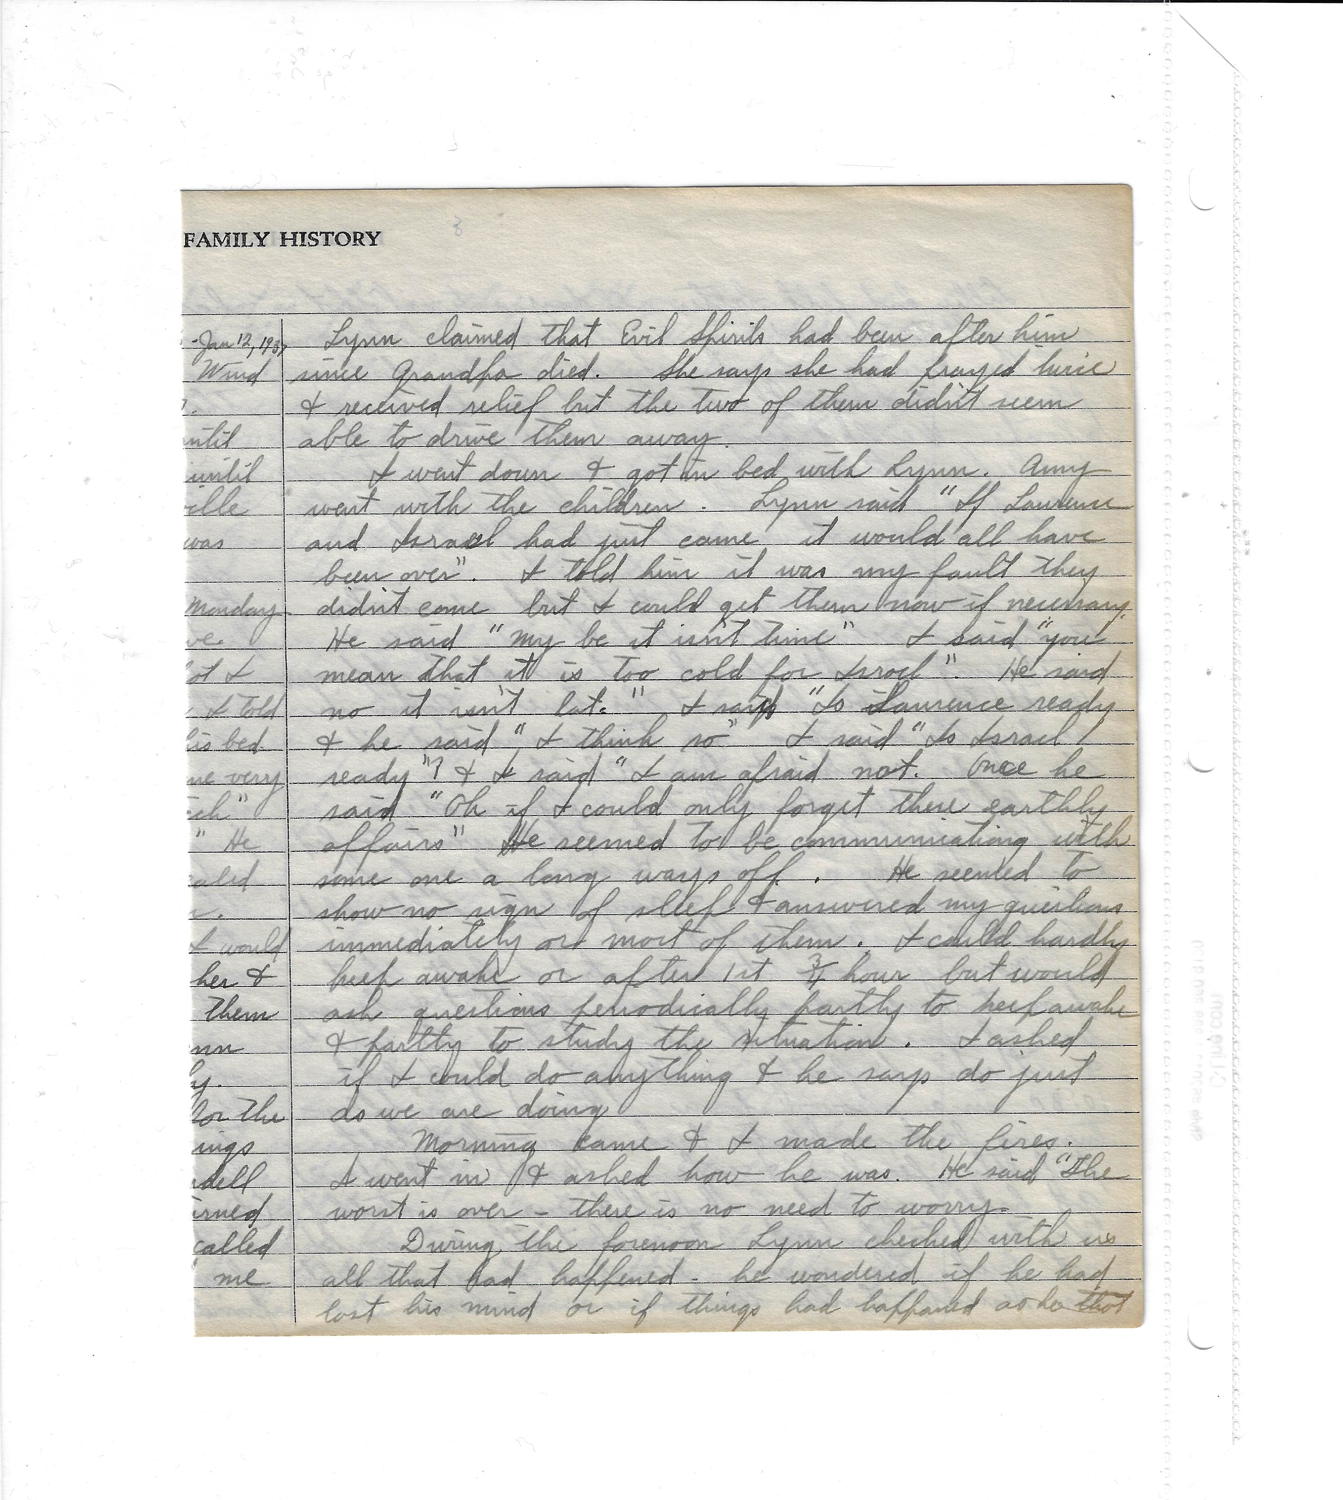 FAMILY HISTORY
-Jan 12, 1937 Lynn claimed that Evil Spirits had been after him
Wind since Grandpa died. She says she had prayed twice
& received relief but the two of them didn't seem
until able to drive them away.
until I went down & got in bed with Lynn. Amy
ville went with the children. Lynn said "If Laurence
was and Israel had just came it would all have
been over". I told him it was my fault they
Monday didn't come but I could get them now if necessary
ve. He said "my be it isn't time" I said "you"
ot & mean that it is too cold for Israel". He said
& told no it isn't lat." I says "Is Laurence ready
his bed & he said "I think so" I said "Is Israel
me very ready"? & I said "I am afraid not. Once he
ch" said "Oh if I could only forget these earthly
" He affairs" He seemed to be communicating with
ealed some one a long ways off. He seemed to
show no sign of sleep & answered my questions
I would immediately or most of them. I could hardly
her & keep awake or after 1st 3/4 hour but would
them ask questions periodically partly to keep awake
nn & partly to study the situation. I asked
ly. if I could do anything & he says do just
for the as we are doing
ings Morning came & I made the fires.
dell I went in & asked how he was. He said "The
urned worst is over - there is no need to worry.
called During the forenoon Lynn checked with us
" me all that had happened - he wondered if he had
lost his mind or if things had happened as he that